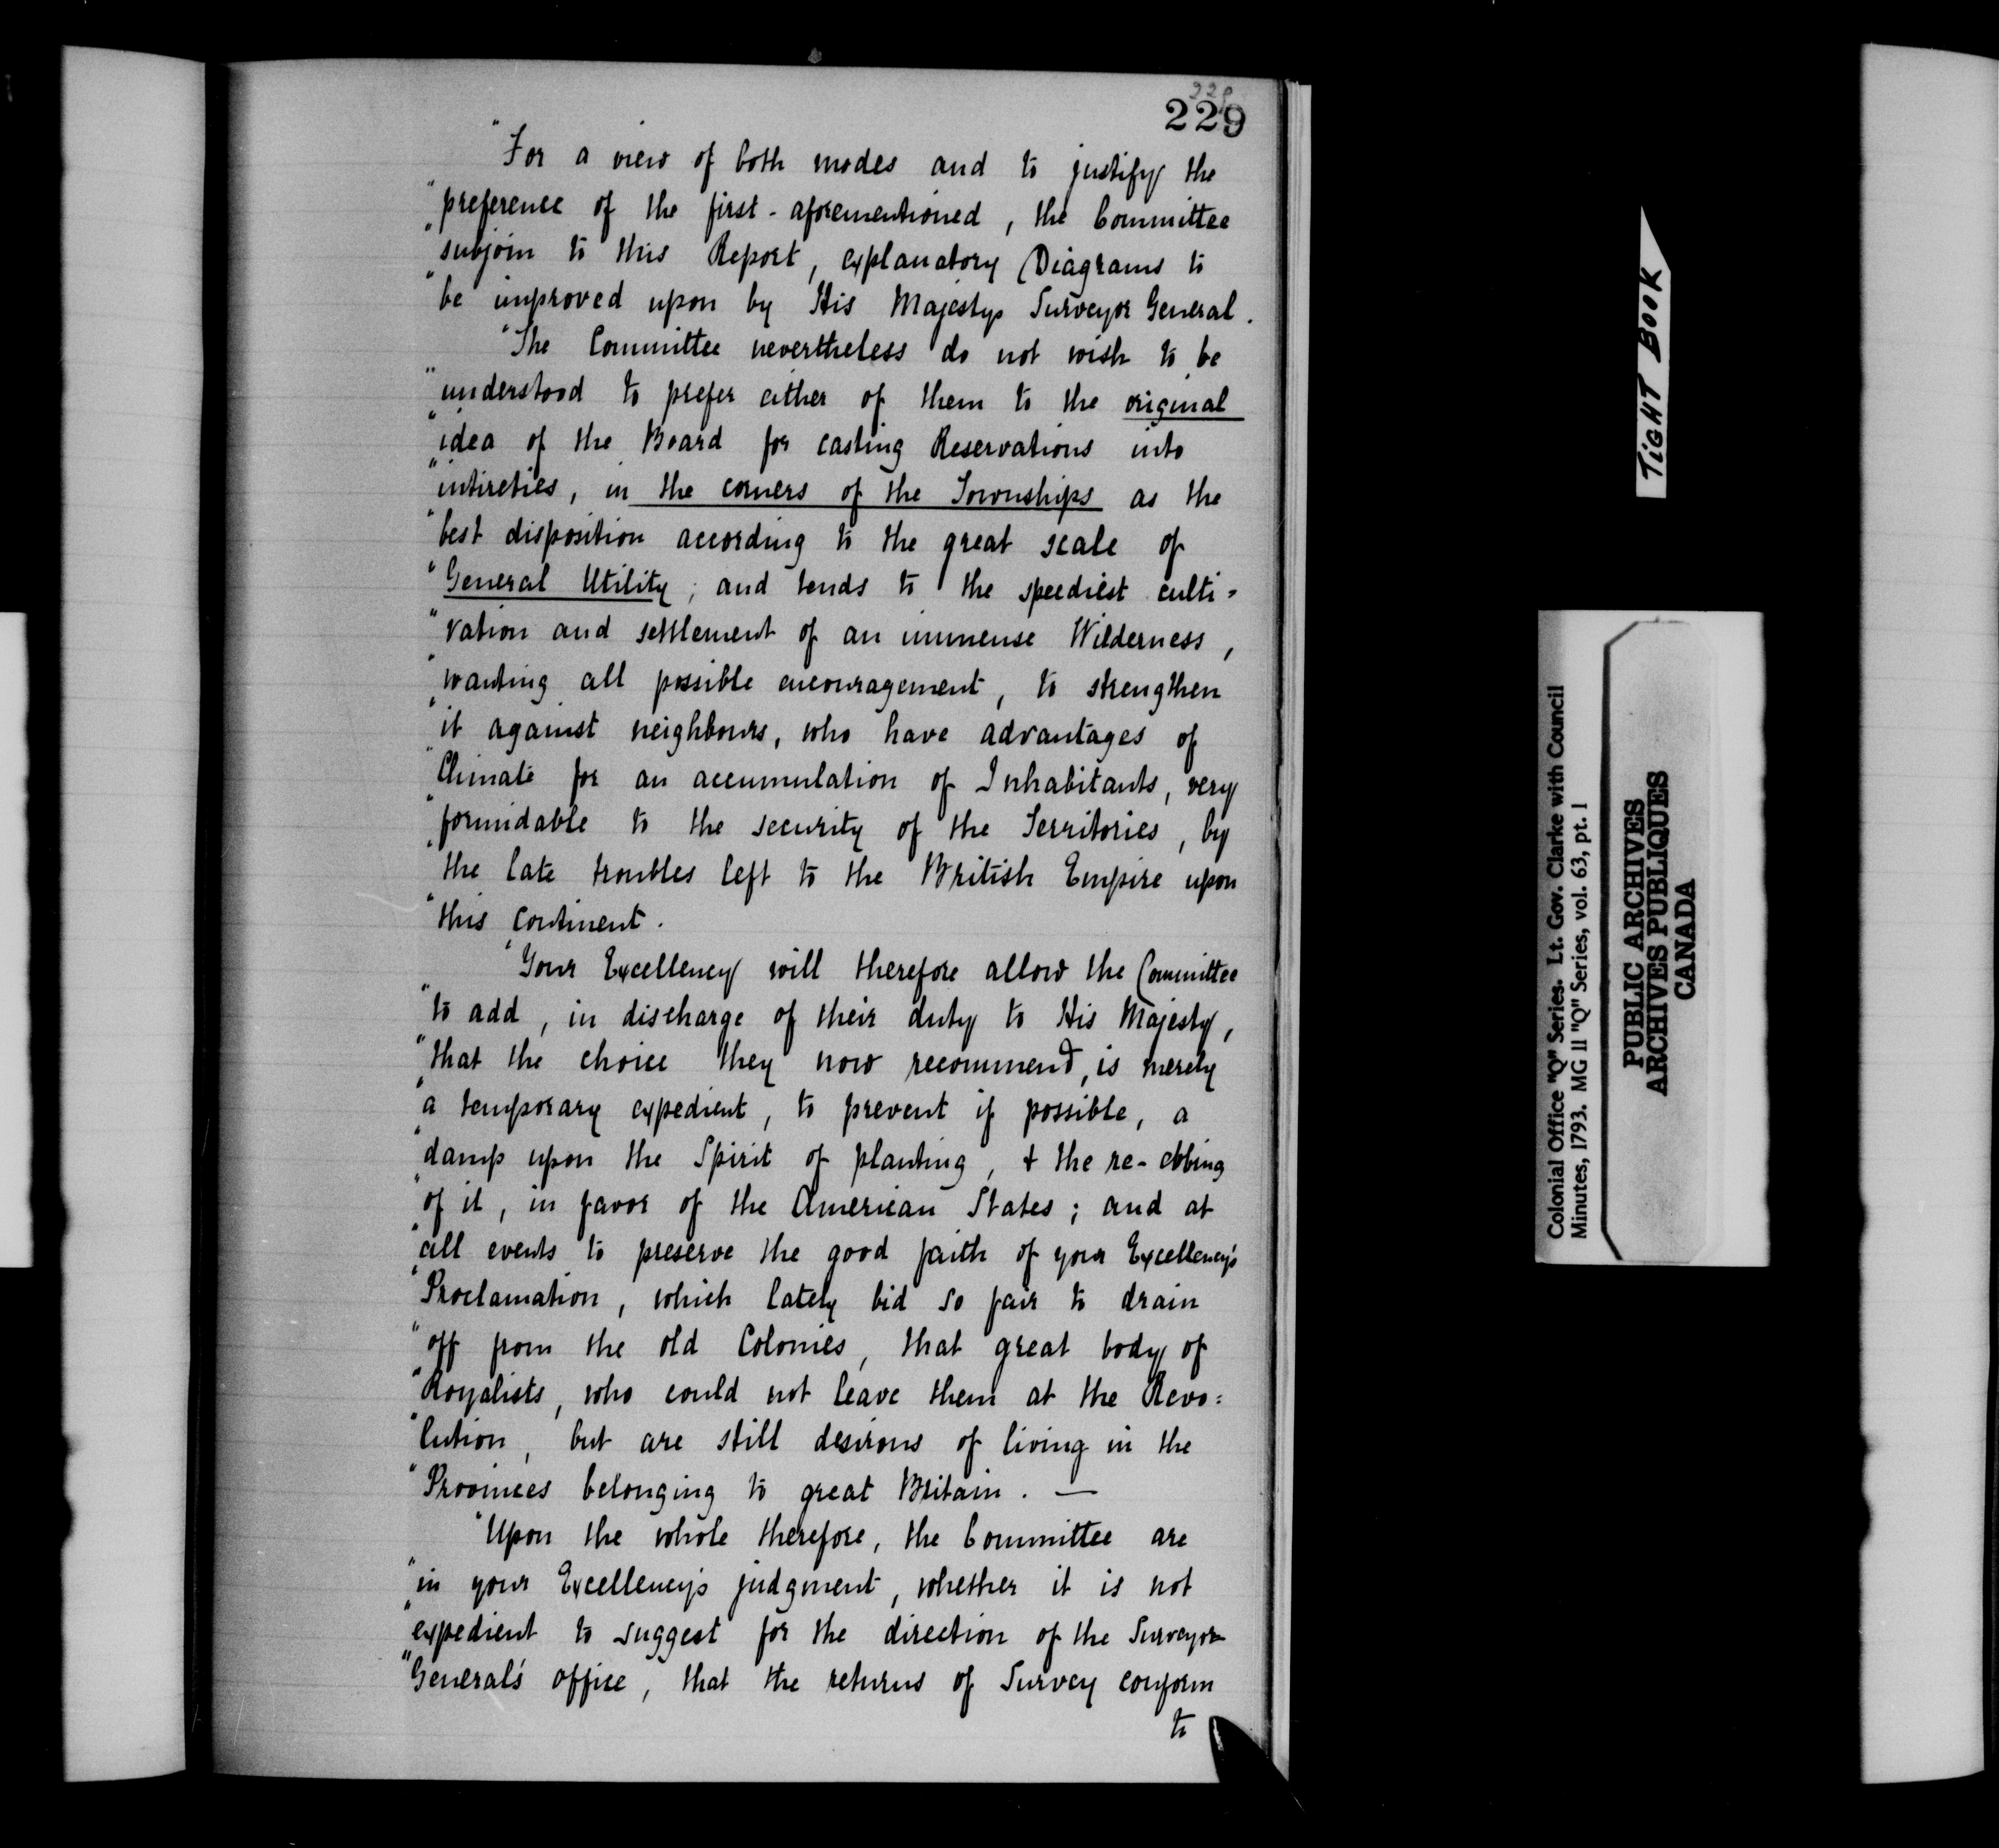 229
229
"For a view of both modes and to justify the
"preference of the first-aforementioned, the Committee
"subjoin to this Report, explanatory Diagrams to
"be improved upon by His Majestys Surveyor General.
"The Committee nevertheless do not wish to be
"understood to prefer either of them to the original
"idea of the Board for casting Reservations into
"intireties, in the corners of the Townships as the
"best disposition according to the great scale of
"General Utility; and tends to the speediest culti=
"vation and settlement of an immense Wilderness,
"wanting all possible encouragement, to strengthen
"it against neighbours, who have advantages of
"Climate for an accumulation of Inhabitants, very
"formidable to the security of the Territories, by
"the late troubles left to the British Empire upon
"this Continent.
"Your Excellency will therefore allow the Committee
"to add, in discharge of their duty to His Majesty,
"that the choice they now recommend, is merely
"a temporary expedient, to prevent if possible, a
"damp upon the Spirit of planting, & the re-ebbing
"of it, in favor of the American States; and at
"all events to preserve the good faith of your Excellency's
"Proclamation, which lately bid so fair to drain
"off from the old Colonies, that great body of
"Royalists, who could not leave them at the Revo=
"lution, but are still desirous of living in the
"Provinces belonging to great Britain. —
"Upon the whole therefore, the Committee are
"in your Excellency's judgment, whether it is not
"expedient to suggest for the direction of the Surveyor
"General's office, that the returns of Survey conform
to
TIGHT BOOK
Colonial Office "Q" Series. Lt. Gov. Clarke with Council
Minutes, 1793. MG 11 "Q" Series, vol. 63, pt. 1
PUBLIC ARCHIVES
ARCHIVES PUBLIQUES
CANADA